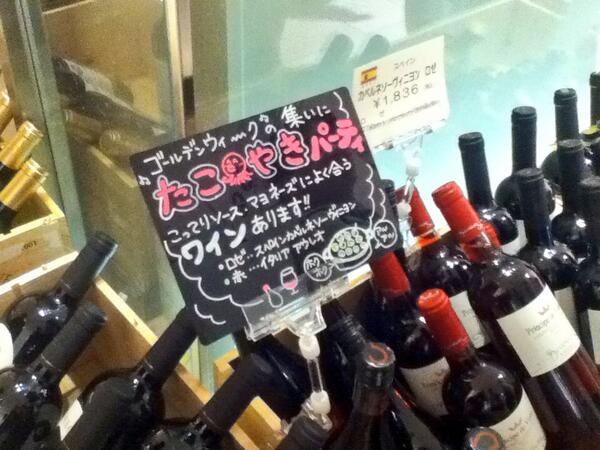 ♪ゴールデンウィーク♪の集いに
たこやきパーティ
こってりソース・マヨネーズによく合う
ワインあります!!
・ロゼ…スペインカベルネソーヴィニヨン
・赤…イタリア アウレオ
ホクホク
スペイン
カベルネソーヴィニヨン ロゼ
¥1,836
Principe de